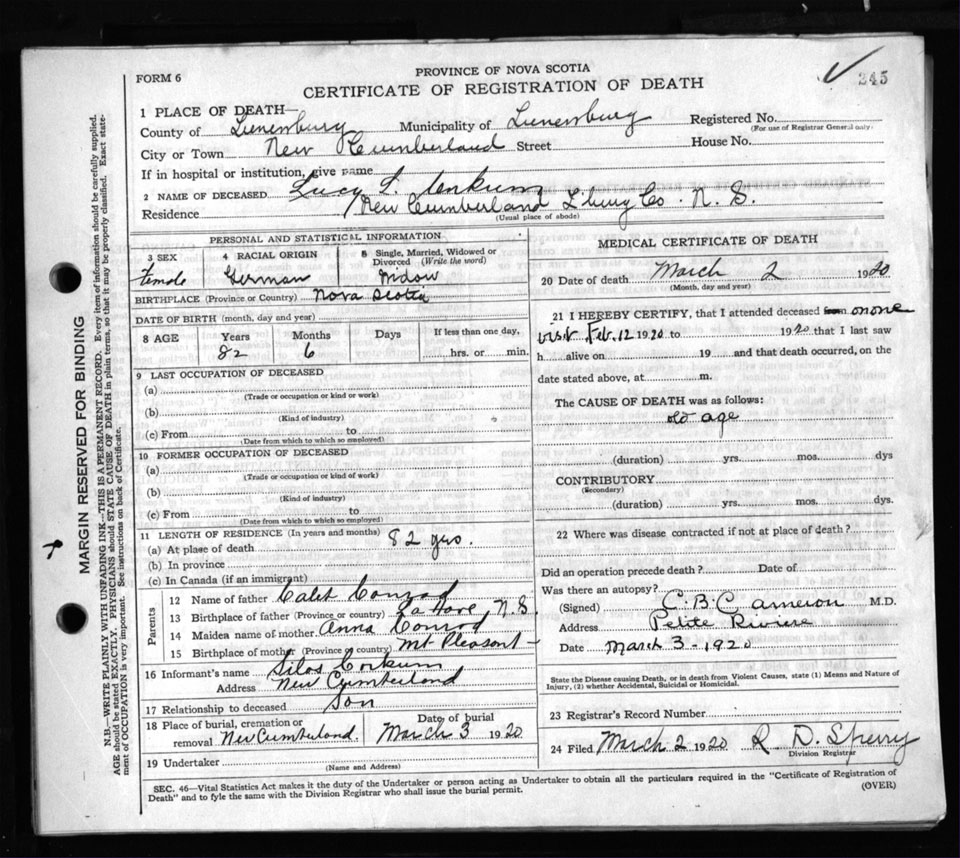 FORM 6
PROVINCE OF NOVA SCOTIA
CERTIFICATE OF REGISTRATION OF DEATH
245
1 PLACE OF DEATH—
County of Lunenburg Municipality of Lunenburg Registered No.
(For use of Registrar General only)
City or Town New Cumberland Street House No.
If in hospital or institution, give name
2 NAME OF DECEASED Lucy L. Corkum
Residence New Cumberland L'burg Co. N. S.
(Usual place of abode)
PERSONAL AND STATISTICAL INFORMATION
3 SEX 4 RACIAL ORIGIN 5 Single, Married, Widowed or Divorced (Write the word)
Female German Widow
BIRTHPLACE (Province or Country) Nova Scotia
DATE OF BIRTH (month, day and year)
8 AGE Years Months Days If less than one day,
82 6 hrs. or min.
9 LAST OCCUPATION OF DECEASED
(a)
(Trade or occupation or kind or work)
(b)
(Kind of industry)
(c) From to
(Date from which to which so employed)
10 FORMER OCCUPATION OF DECEASED
(a)
(Trade or occupation or kind of work)
(b)
(Kind of industry)
(c) From to
(Date from which to which so employed)
11 LENGTH OF RESIDENCE (In years and months) 82 yrs.
(a) At place of death
(b) In province
(c) In Canada (if an immigrant)
Parents
12 Name of father Caleb Conrad
13 Birthplace of father (Province or country) La Have, N. S.
14 Maiden name of mother Anna Conrod
15 Birthplace of mother (Province or country) Mt Pleasant
16 Informant's name Silas Corkum
Address New Cumberland
17 Relationship to deceased Son
18 Place of burial, cremation or removal New Cumberland. Date of burial March 3 1920
19 Undertaker
(Name and Address)
MEDICAL CERTIFICATE OF DEATH
20 Date of death March 2 1920
(Month, day and year)
21 I HEREBY CERTIFY, that I attended deceased from on one
visit Feb. 12 1920 to 1920 that I last saw
h alive on 19 and that death occurred, on the
date stated above, at m.
The CAUSE OF DEATH was as follows:
old age
(duration) yrs. mos. dys
CONTRIBUTORY
(Secondary)
(duration) yrs. mos. dys.
22 Where was disease contracted if not at place of death?
Did an operation precede death? Date of
Was there an autopsy?
(Signed) C. B. Cameron M.D.
Address Petite Riviere
Date March 3 - 1920
State the Disease causing Death, or in death from Violent Causes, state (1) Means and Nature of
Injury, (2) whether Accidental, Suicidal or Homicidal.
23 Registrar's Record Number
24 Filed March 2 1920 R D. Sperry
Division Registrar
SEC. 46—Vital Statistics Act makes it the duty of the Undertaker or person acting as Undertaker to obtain all the particulars required in the "Certificate of Registration of
Death" and to fyle the same with the Division Registrar who shall issue the burial permit.
(OVER)
MARGIN RESERVED FOR BINDING
N.B.—WRITE PLAINLY WITH UNFADING INK—THIS IS A PERMANENT RECORD. Every item of information should be carefully supplied.
AGE should be stated EXACTLY. PHYSICIANS should STATE CAUSE OF DEATH in plain terms, so that it may be properly classified. Exact state-
ment of OCCUPATION is very important. See instructions on back of Certificate.